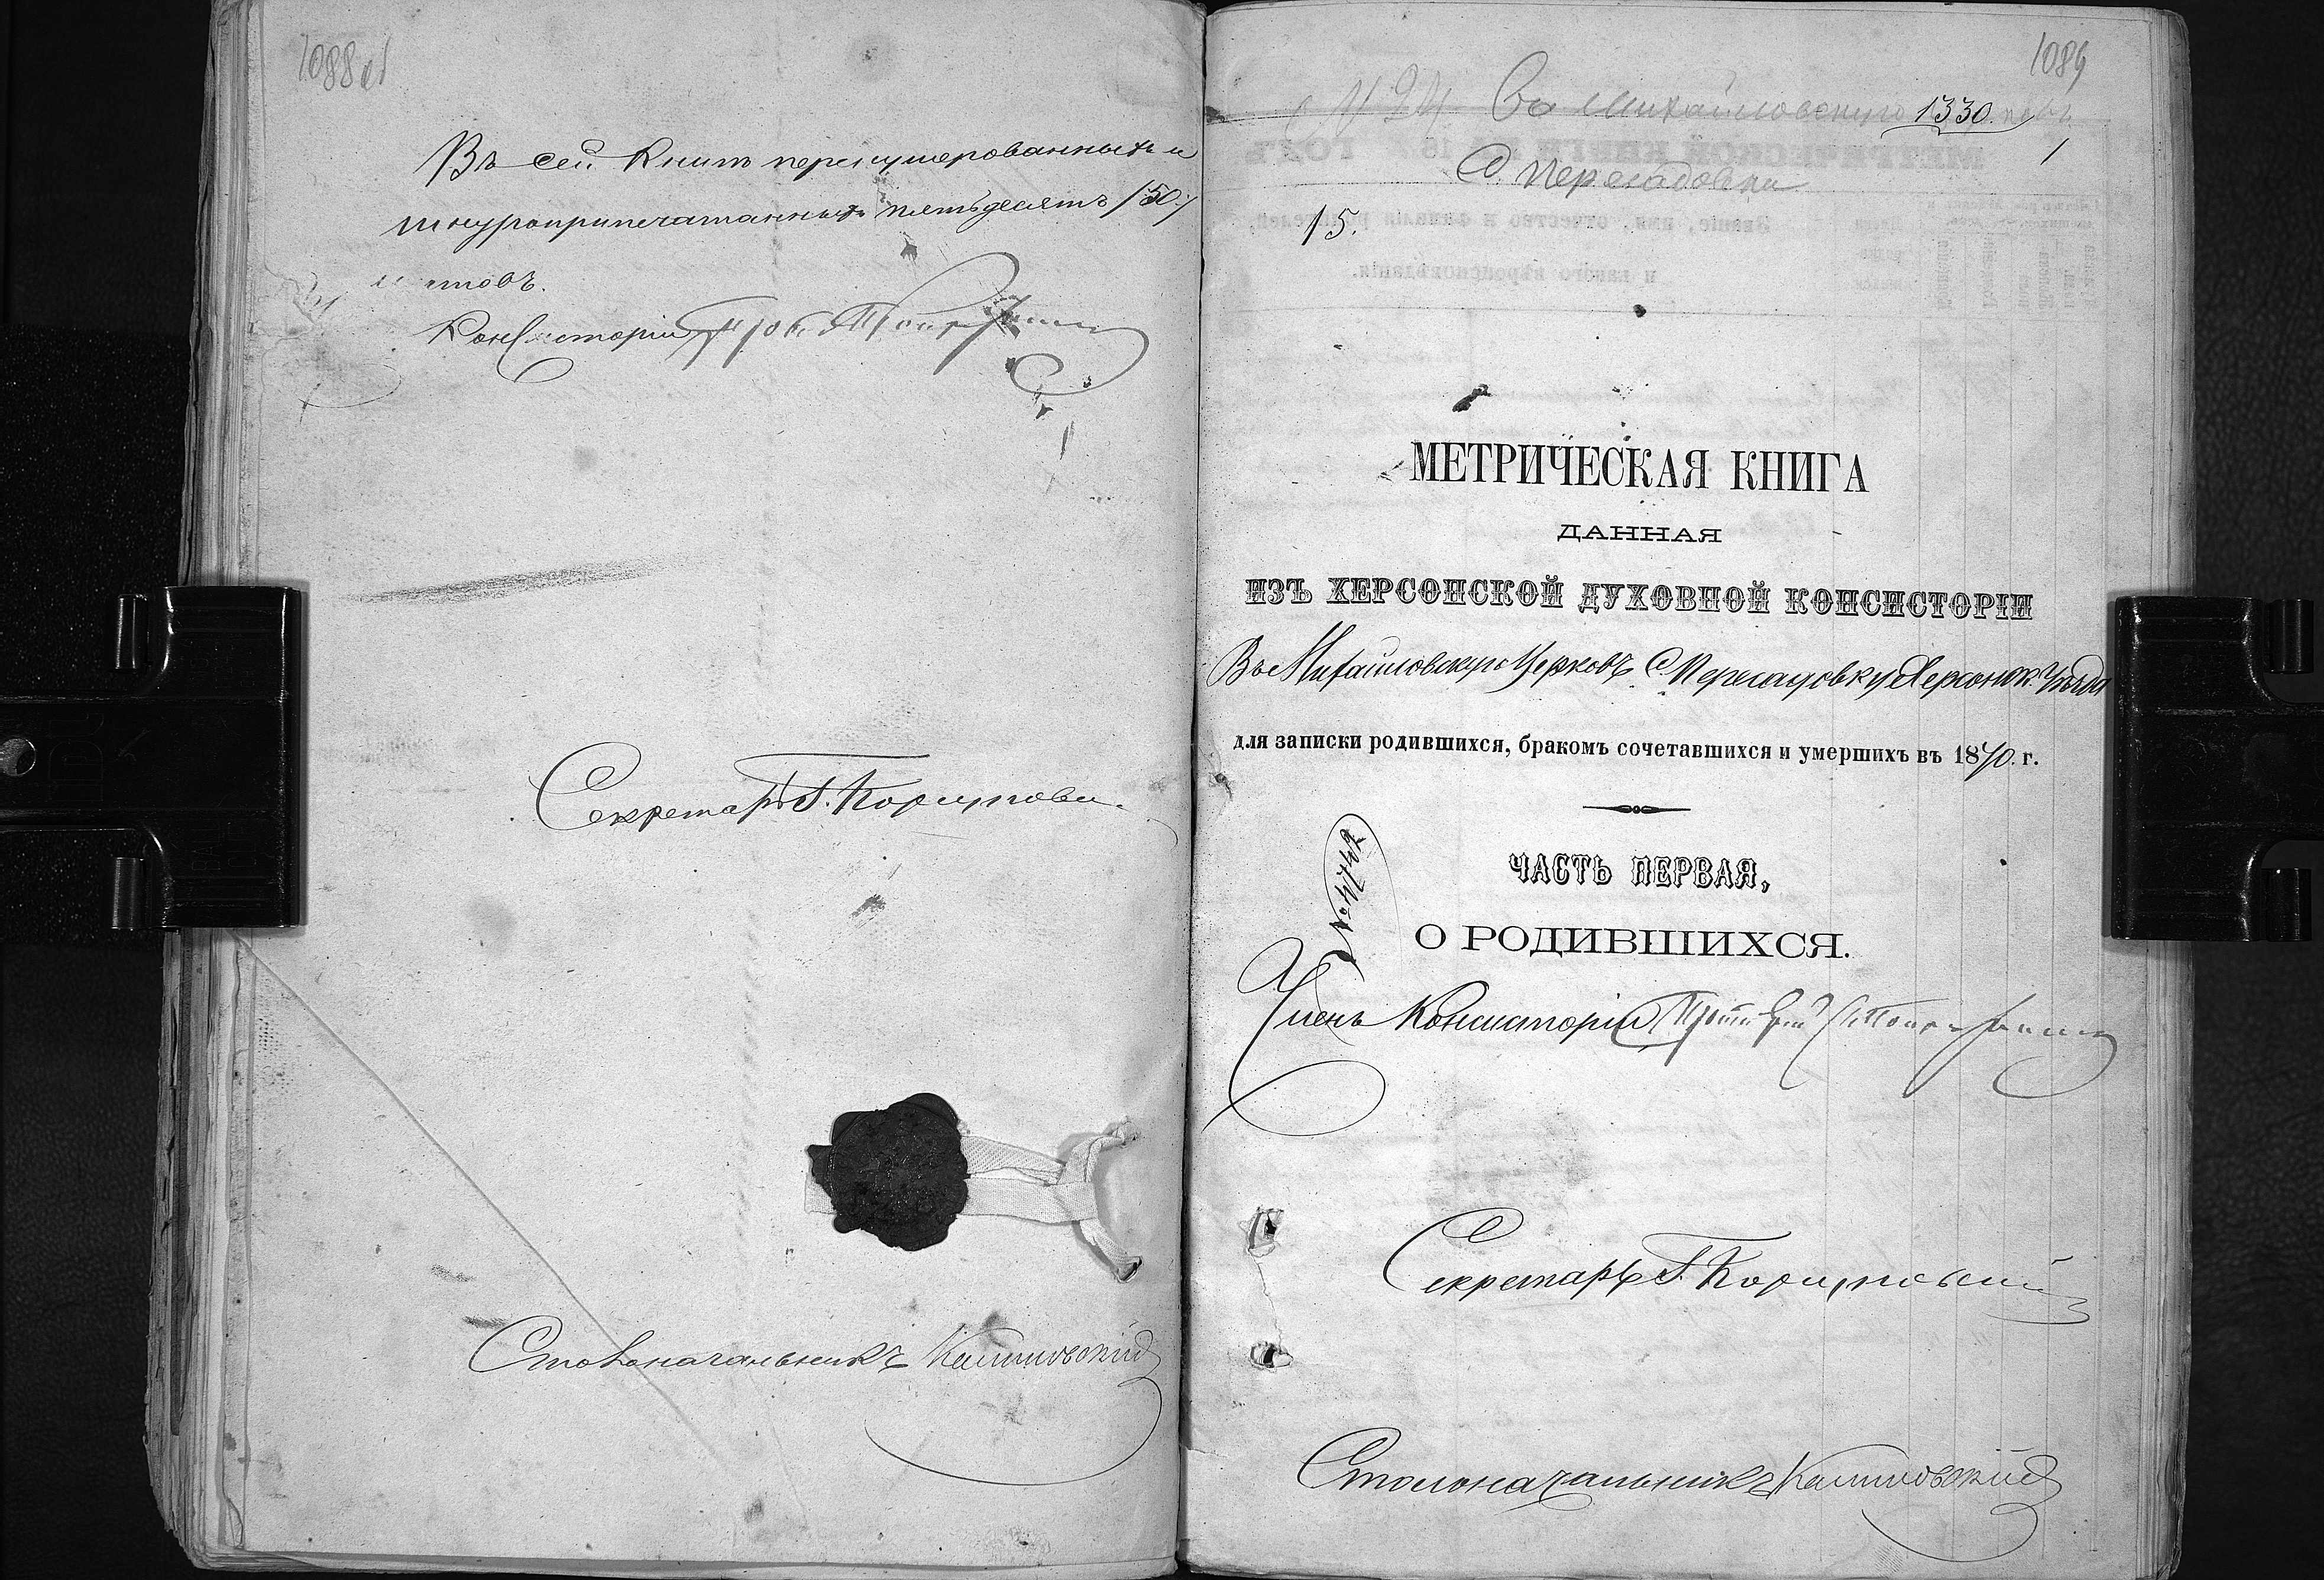 1088 об
Въ сей книгѣ перенумерованныхъ и
шнуроприпечатанныхъ пятьдесятъ /50:/
листовъ.
Консисторіи
Секретарь
Столоначальникъ
1089
№ 24 Въ Михайловскую 1330.
1
С. Пересадовки
15.
МЕТРИЧЕСКАЯ КНИГА
ДАННАЯ
ИЗЪ ХЕРСОНСКОЙ ДУХОВНОЙ КОНСИСТОРІИ
Въ Михайловскую Церковь С. Пересадовку Херсонск. Уѣзда
для записки родившихся, бракомъ сочетавшихся и умершихъ въ 1870. г.
ЧАСТЬ ПЕРВАЯ,
О РОДИВШИХСЯ.
Членъ Консисторіи
Секретарь
Столоначальникъ